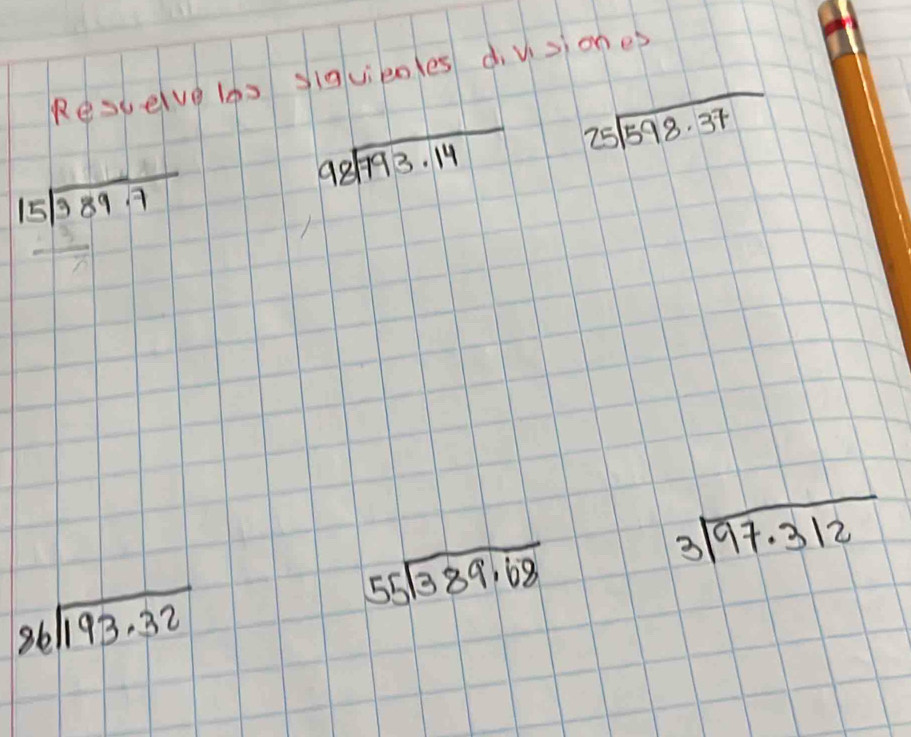 Resuelve las siguientes divisiones
15 389.7
98 793.14
25 598.37
86 193.32
55 389.68
3 97.312